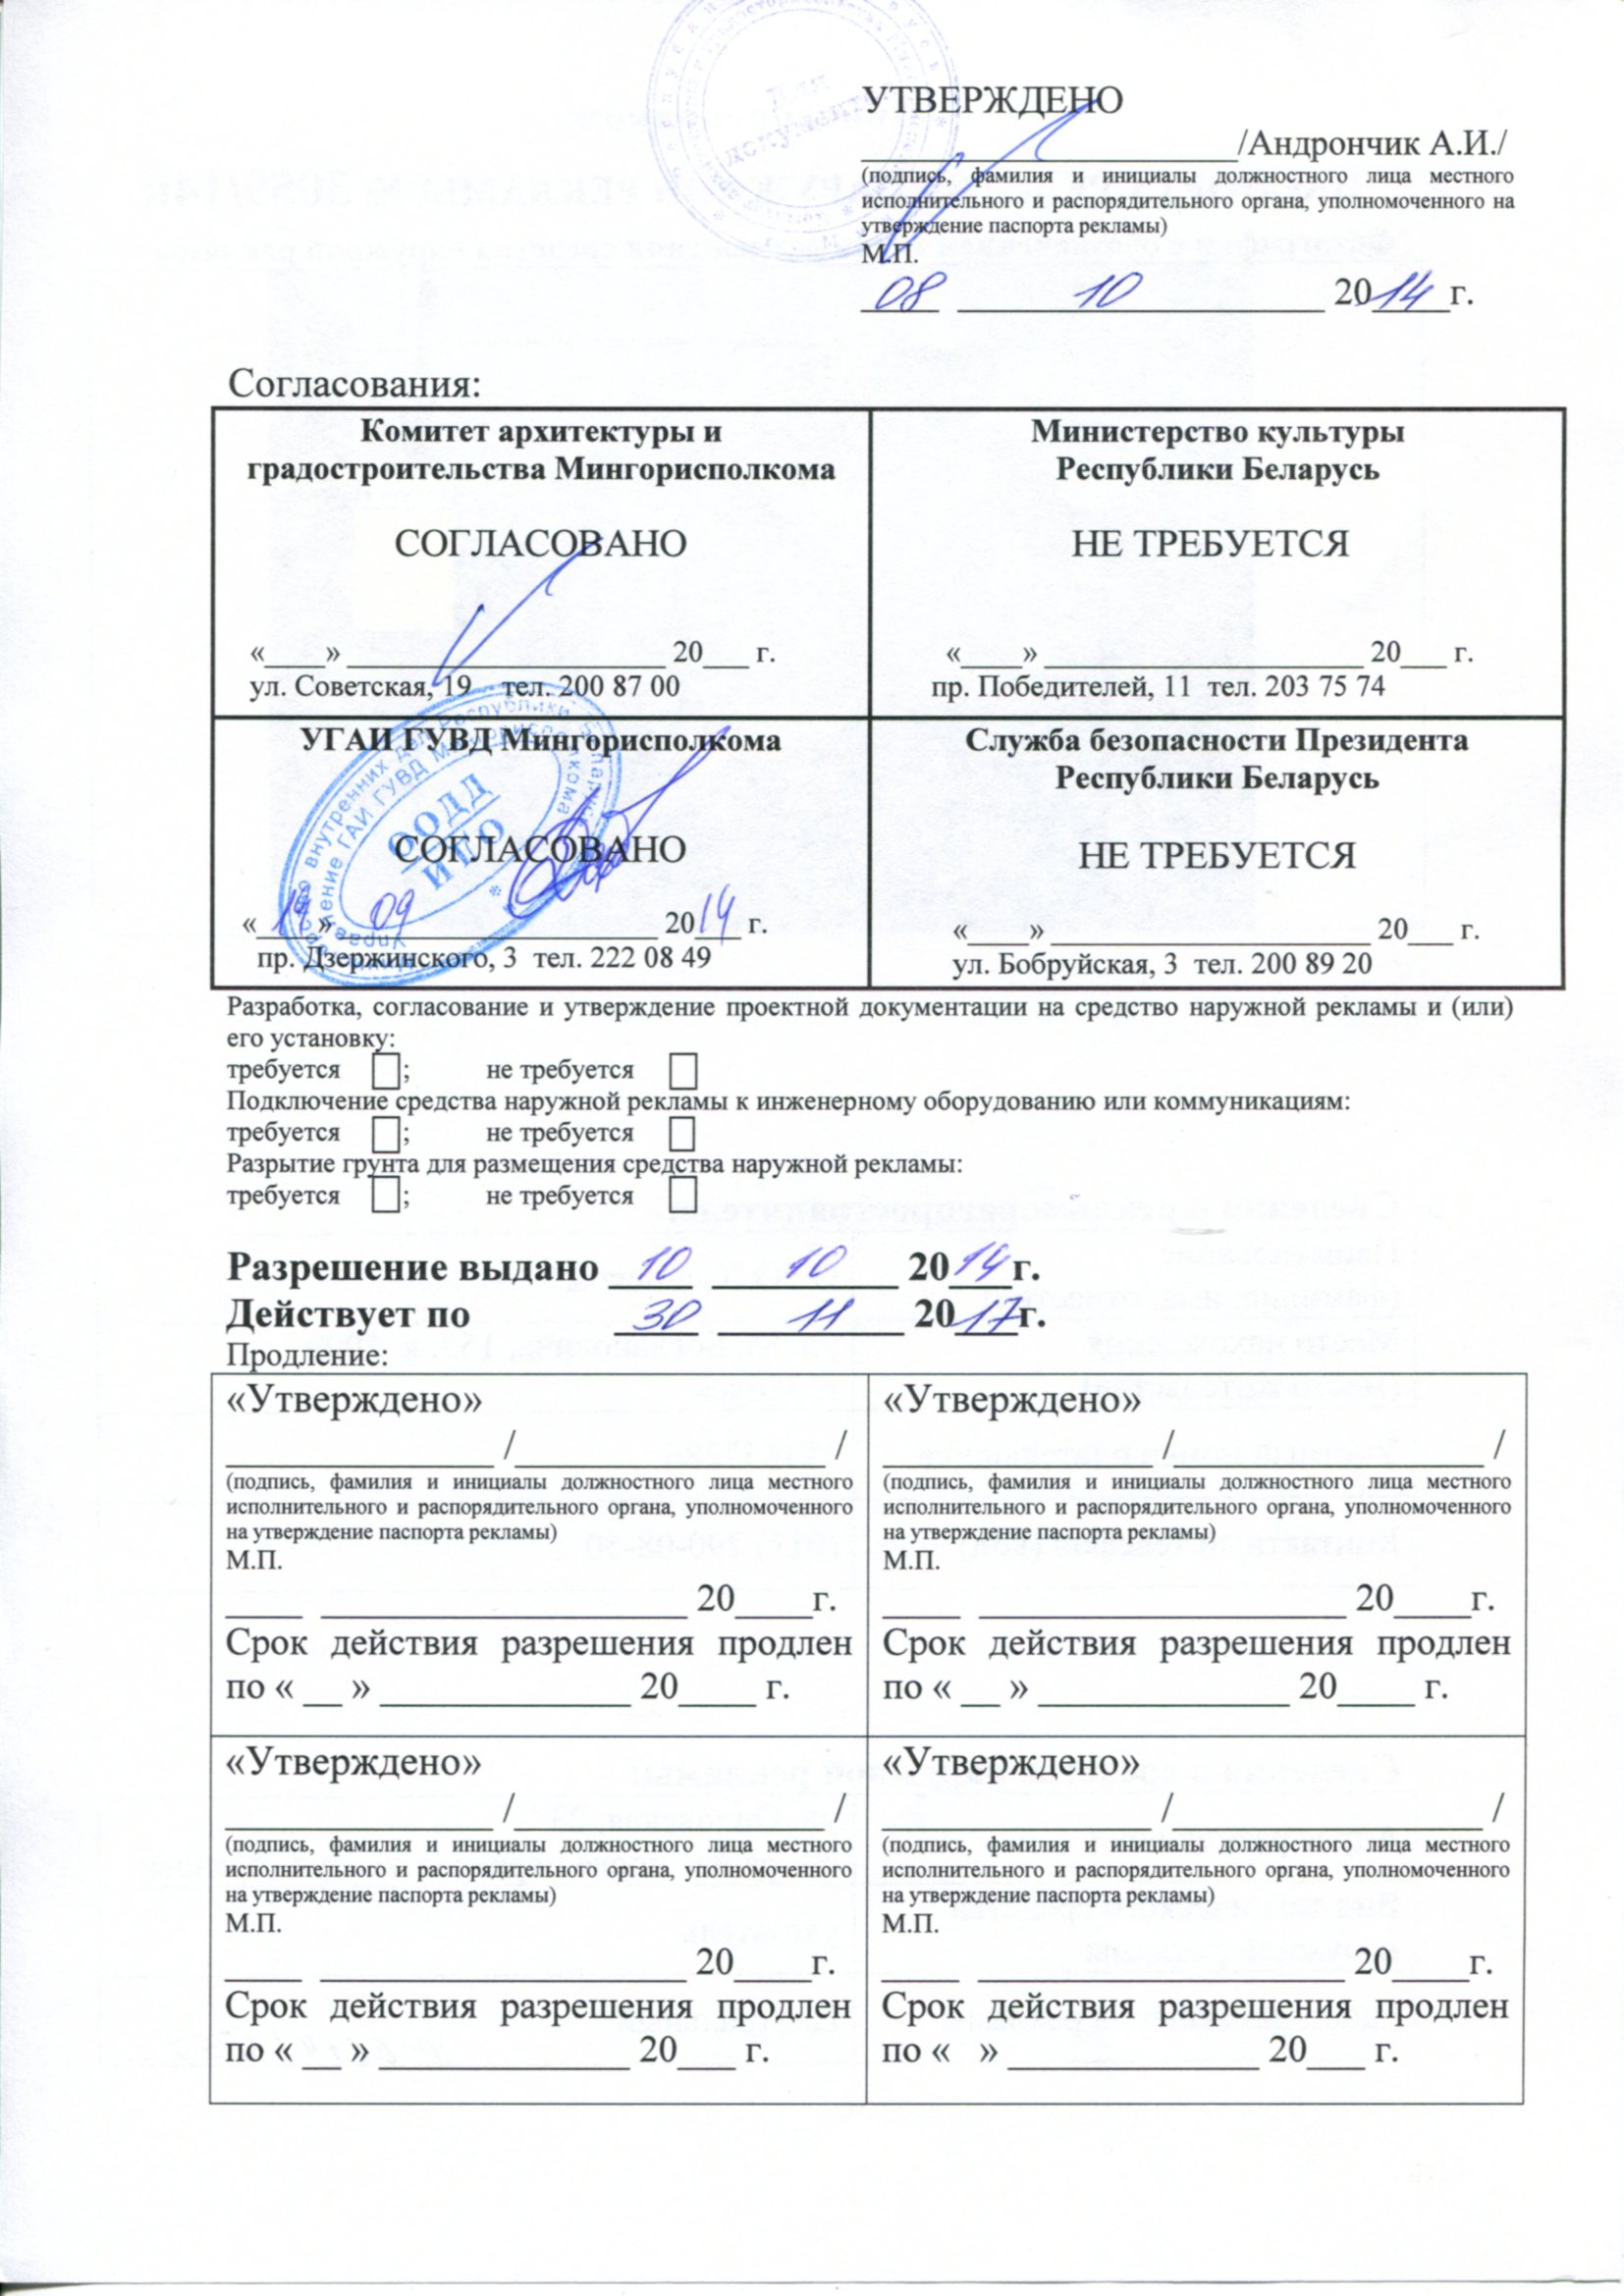 УТВЕРЖДЕНО
____________________/Андрончик А.И./
(подпись, фамилия и инициалы должностного лица местного
исполнительного и распорядительного органа, уполномоченного на
утверждение паспорта рекламы)
М.П.
08 10 2014г.
для
документов
Согласования:
Комитет архитектуры и
градостроительства Мингорисполкома
СОГЛАСОВАНО
«____» ____________________ 20___ г.
ул. Советская, 19 тел. 200 87 00
Министерство культуры
Республики Беларусь
НЕ ТРЕБУЕТСЯ
«____» ____________________ 20___ г.
пр. Победителей, 11 тел. 203 75 74
УГАИ ГУВД Мингорисполкома
СОГЛАСОВАНО
ООДД
ИТО
Управление ГАИ ГУВД Мингорисполкома
« » 09 2014 г.
пр. Дзержинского, 3 тел. 222 08 49
Служба безопасности Президента
Республики Беларусь
НЕ ТРЕБУЕТСЯ
«____» ____________________ 20___ г.
ул. Бобруйская, 3 тел. 200 89 20
Разработка, согласование и утверждение проектной документации на средство наружной рекламы и (или)
его установку:
требуется ☐; не требуется ☐
Подключение средства наружной рекламы к инженерному оборудованию или коммуникациям:
требуется ☐; не требуется ☐
Разрытие грунта для размещения средства наружной рекламы:
требуется ☐; не требуется ☐
Разрешение выдано 10 10 2014г.
Действует по 30 11 2017г.
Продление:
«Утверждено»
______________ /________________ /
(подпись, фамилия и инициалы должностного лица местного
исполнительного и распорядительного органа, уполномоченного
на утверждение паспорта рекламы)
М.П.
____ ___________________ 20____г.
Срок действия разрешения продлен
по « __ » _____________ 20____ г.
«Утверждено»
______________ /________________ /
(подпись, фамилия и инициалы должностного лица местного
исполнительного и распорядительного органа, уполномоченного
на утверждение паспорта рекламы)
М.П.
____ ___________________ 20____г.
Срок действия разрешения продлен
по « __ » _____________ 20____ г.
«Утверждено»
______________ /________________ /
(подпись, фамилия и инициалы должностного лица местного
исполнительного и распорядительного органа, уполномоченного
на утверждение паспорта рекламы)
М.П.
____ ___________________ 20____г.
Срок действия разрешения продлен
по « __ » _____________ 20___ г.
«Утверждено»
______________ /________________ /
(подпись, фамилия и инициалы должностного лица местного
исполнительного и распорядительного органа, уполномоченного
на утверждение паспорта рекламы)
М.П.
____ ___________________ 20____г.
Срок действия разрешения продлен
по « » _____________ 20___ г.